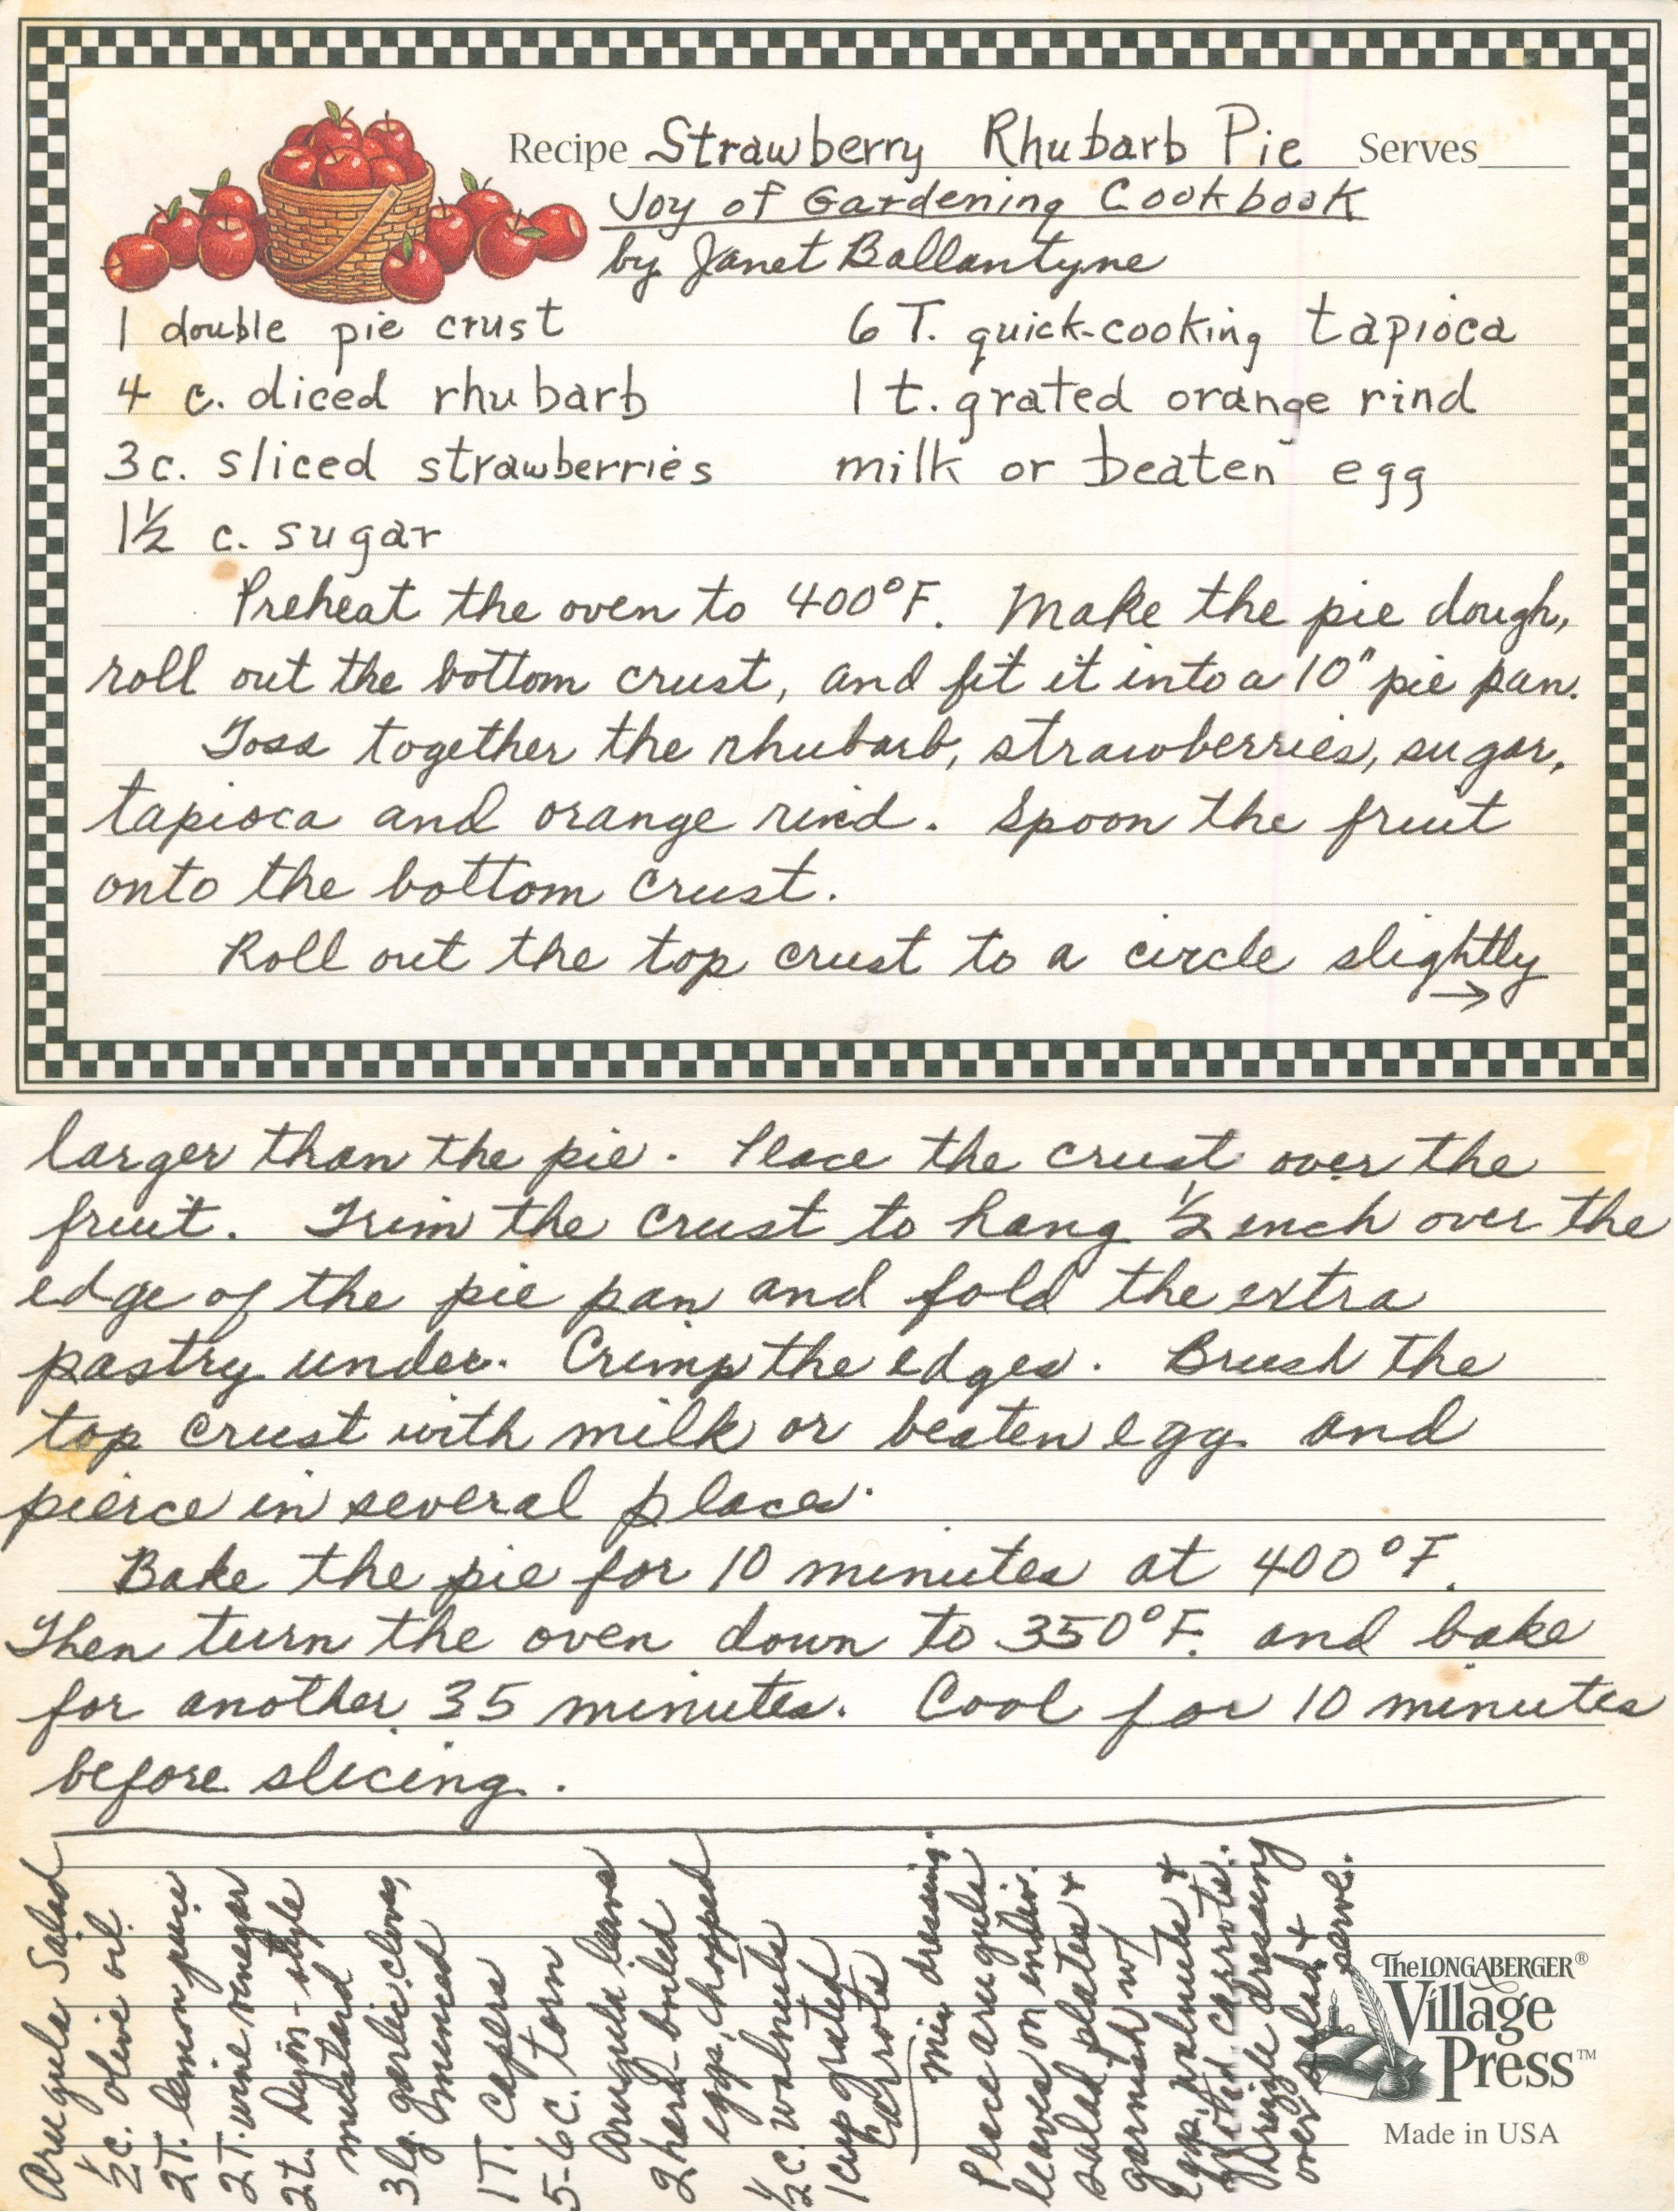 Recipe Strawberry Rhubarb Pie Serves
Joy of Gardening Cookbook
by Janet Ballantyne
1 double pie crust
4 c. diced rhubarb
3 c. sliced strawberries
1½ c. sugar
6 T. quick-cooking tapioca
1 t. grated orange rind
milk or beaten egg
Preheat the oven to 400°F. Make the pie dough,
roll out the bottom crust, and fit it into a 10" pie pan.
Toss together the rhubarb, strawberries, sugar,
tapioca and orange rind. Spoon the fruit
onto the bottom crust.
Roll out the top crust to a circle slightly
→
larger than the pie. Place the crust over the
fruit. Trim the crust to hang ½ inch over the
edge of the pie pan and fold the extra
pastry under. Crimp the edges. Brush the
top crust with milk or beaten egg and
pierce in several places.
Bake the pie for 10 minutes at 400°F.
Then turn the oven down to 350°F. and bake
for another 35 minutes. Cool for 10 minutes
before slicing.
Arugula Salad
½ c. olive oil
2 T. lemon juice
2 T. wine vinegar
2 t. Dijon-style
mustard
3 lg. garlic cloves,
minced
1 T. capers
5-6 c. torn
arugula leaves
2 hard-boiled
eggs, chopped
½ c. walnuts
1 cup grated
carrots
Mix dressing.
Place arugula
leaves on indiv.
salad plates +
garnish w/
eggs, walnuts +
grated carrots.
Drizzle dressing
over salad +
serve.
The LONGABERGER®
Village
Press™
Made in USA